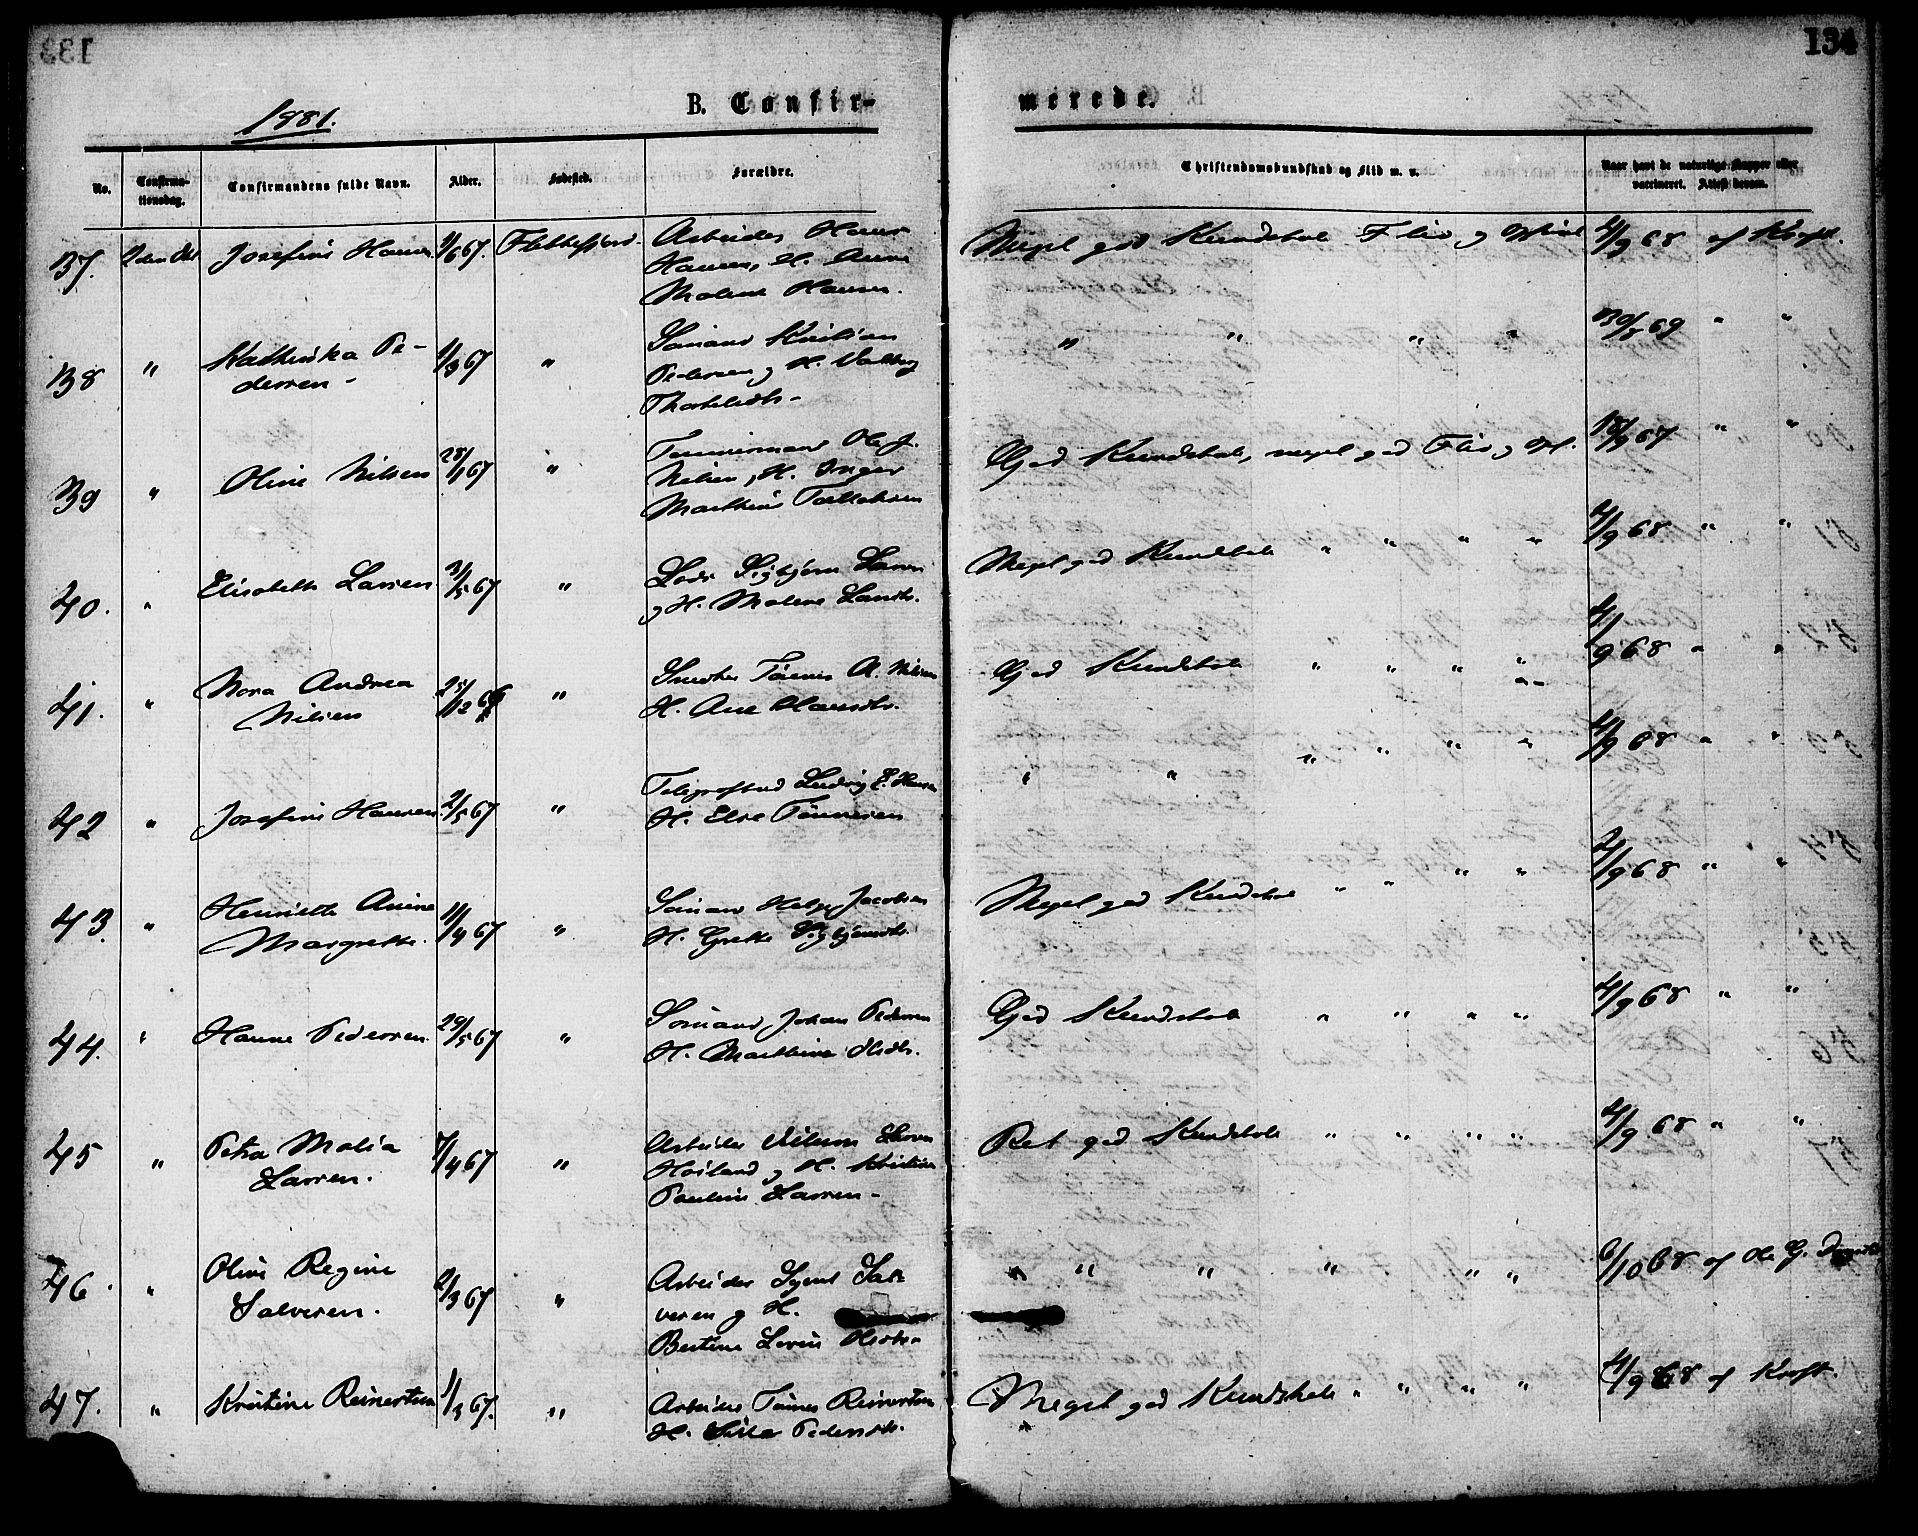 134
1881.
B. Confir-
merede.
No.
Confirma-
tionsdag.
Confirmandens fulde Navn.
Alder.
Fødested.
Forældre.
Christendomskundskab og Flid m. v.
Naar havt de naturlige Kopper eller
vaccineret. Attest derom.
37. 2den Okt Josefine Hansen 9/6 67. Flekkefjord. Arbeider Hans
Hansen, H. Anne
Malene Hansen.
Meget god Kundskab Flid og 4/9 68 af Kraft.
38 " Kathinka Pe-
dersen - 1/3 67 " Sømand Kristian
Pedersen og H. Valborg
" " " " 30/8 69 " "
39 " Oline Nilsen 28/1 67 " Tømmermand Ole J.
Nilsen, H. Inger
Marthine
God Kundskab, meget god Flid og 18/9 67 " "
40. " Elisabeth Larsen 31/5 67 " Lods Sigbjørn Larsen
og H. Malene
Meget god Kundskab " " " " 4/9 68 " "
41. " Nora Andrea
Nilsen 25/12 66 " Tønnes A. Nilsen
H. Ane Hansdtr.
God Kundskab " " " " 4/9 68 " "
42 " Josefine Hansen 2/5 67 " Ludvig E. Hansen
H. Else Tønnesen
" " " " " " 4/9 68 " "
43. " Henriette Anine
Margrethe. 11/4 67 " Sømand Helge Jacobsen
H. Grethe Sigbjørnsdtr.
Meget god Kundskab " " " " 4/9 68 " "
44. " Hanne Pedersen. 29/5 67 " Sømand Johan Pedersen
H. Marthine Olsdtr.
God Kundskab " " " " 4/9 68 " "
45 " Petra Malia
Larsen. 7/4 67 " Arbeider
Høiland og H. Kristine
Pauline Larsen -
Ret god Kundskab " " " " 4/9 68 " "
46. " Oline Regine
Salvesen. 2/3 67 " Arbeider Sal-
vesen og H.
Bertine Olsdtr.
" " " " " " 6/10 68 af Ole G.
47. " Kristine Reinertsen 1/3 67. " Arbeider Tønnes Reinertsen
H. Pedersdtr.
Meget god Kundskab " " " " 4/9 68 af Kraft.